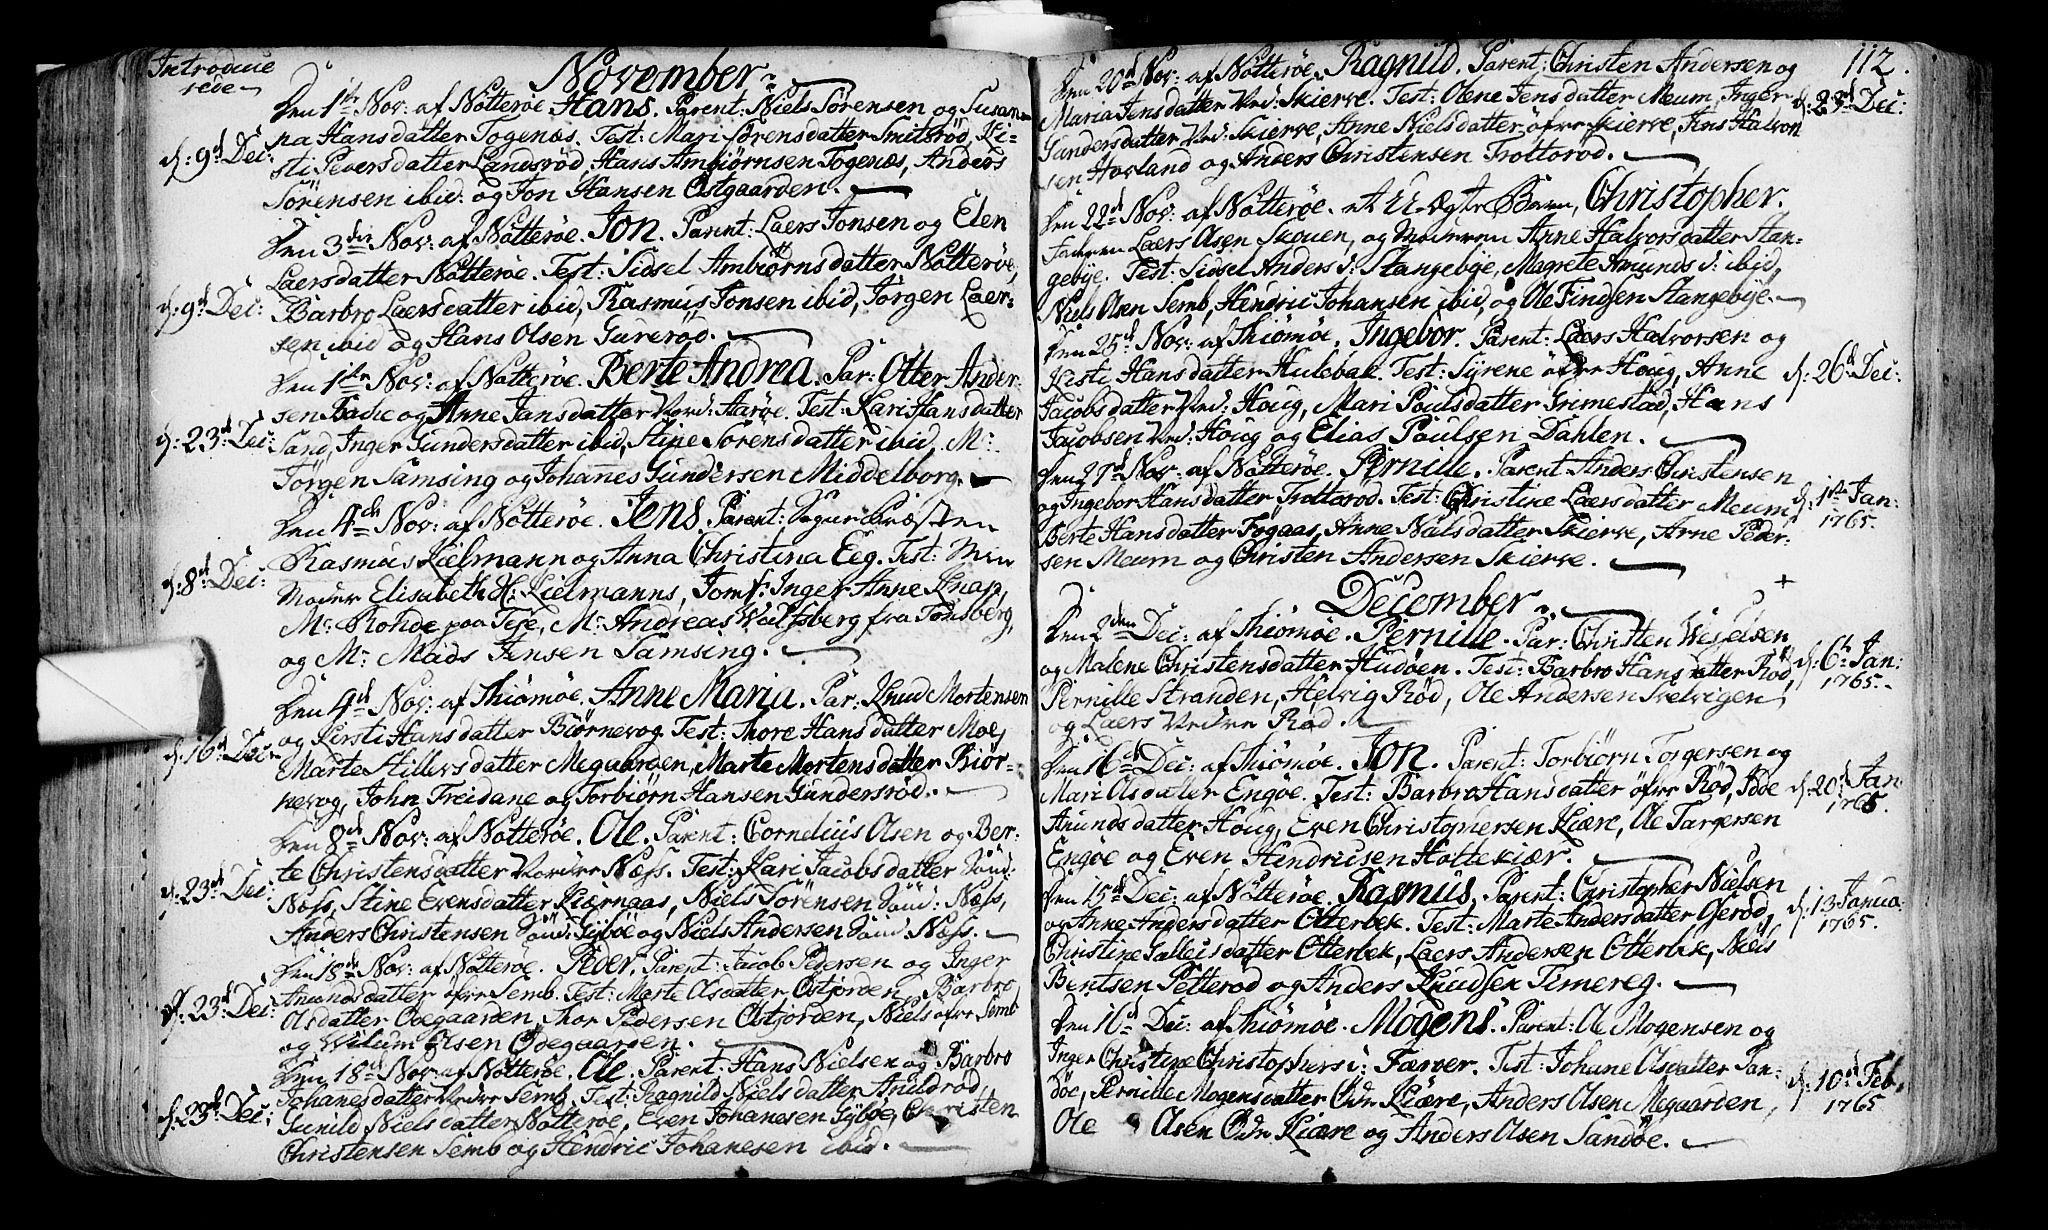 Introduce
rede
November
Den 1te Nov: af Nötteröe Hans. Parent: Niels Sörensen og Susan-
na Hansdatter Togenæs. Test: Mari Sörensdatter Smitsröd, Ki-
d: 9d Dec: sti Peversdatter Landsröd, Hans Ambiörnsen Togenæs, Anders
Sörensen ibid: og Jon Hansen Ostgaarden.
Den 3die Nov: af Nötteröe. Jon. Parent: Laers Jonsen og Elen
Laersdatter Nötteröe. Test: Sidsel Ambiörnsdatter Nötteröe,
d: 9d Dec: Barbro Laersdatter ibid, Rasmus Jonsen ibid, Jörgen Laer-
sen ibid og Hans Olsen Gureröd.
Den 1te Nov: af Nötteröe. Berte Andrea. Par: Otter Ander-
sen og Anne Jansdatter Aaröe. Test: Kari Hansdatter
d: 23d Dec: Sand, Inger Gundersdatter ibid, Stine Sörensdatter ibid. Mr.
Jörgen Samsing og Johannes Gundersen Middelborg.
Den 4de Nov: af Nötteröe. Jens. Parent: Sogne Præsten
Rasmus Kielmann og Anna Christina Eeg. Test: Min
d: 8d Dec: Moder Elisabeth Kielmanns, Jomf: Inger Anne Knap,
Mr. Rohde paa Tese, Mr. Andreas Wulfsberg fra Tonsberg,
og Mr. Mads Jensen Samsing.
Den 4d Nov: af Thiömöe. Anne Maria. Par: Knud Mortensen
og Kirsti Hansdatter Biörnevog. Test: Thore Hansdatter Moe,
d: 16d Dec: Marte Hillersdatter Megaarden, Marte Mortensdatter Biör-
nevog, John Freidane og Torbiörn Hansen Gundersröd.
Den 8d Nov: af Nötteröe. Ole. Parent: Cornelius Olsen og Ber-
te Christensdatter Næss. Test: Kari Jacobsdatter Sönd:
d: 23d Dec: Næss, Stine Evensdatter Kiærnaas, Niels Sörensen Sönd: Næss,
Anders Christensen Sönd: Giböe og Niels Andersen Sönd: Næss.
Den 18de Nov: af Nötteröe. Peder. Parent: Jacob Pedersen og Inger
Amundsdatter öfre Semb. Test: Marte Olsdatter Ostjorden, Barbro
d: 23d Dec: Olsdatter Odegaarden, Thor Pedersen Ostjorden, Niels öfre Semb
og Willum Olsen Odegaarden.
Den 18d Nov: af Nötteröe. Ole. Parent: Hans Nielsen og Barbro
Johanesdatter Nedre Semb. Test: Ragnild Nielsdatter Aaulröd,
d: 23d Dec: Gunild Nielsdatter Nötteröe, Even Johanesen Giböe, Christen
Christensen Semb og Hendric Johanesen ibid.
112.
Den 20d Nov: af Nötteröe. Ragnild. Parent: Christen Andersen og
Maria Jensdatter Ned: Skierve. Test: Olene Jensdatter Meum, Inger d: 23d Dec:
Gundersdatter Ned: Skierve, Anne Nielsdatter öfre Skierve, Jens Halvor-
sen Hovland og Anders Christensen Trottoröd.
Den 22d Nov: af Nötteröe. et Uægte Barn, Christopher.
Faderen Laers Olsen Skouen, og Moderen Anne Halvorsdatter Stan-
gebye. Test: Sidsel Anders d: Stangebye, Magrete Amunds d: ibid,
Niels Olsen Semb, Hendric Johansen ibid, og Ole Findsen Stangebye.
Den 25d Nov: af Thiömöe. Ingebor. Parent: Laers Halvorsen og
Kirsti Hansdatter Hulebak. Test: Syrene öfre Houg, Anne d: 26d Dec:
Jacobsdatter Ned: Houg, Mari Poulsdatter Grimestad, Hans
Jacobsen Ned: Houg og Elias Paulsen Dahlen.
Den 27d Nov: af Nötteröe. Pernille. Parent: Anders Christensen
og Ingebor Hansdatter Trottoröd. Test: Christine Laersdatter Meum, d: 1te Jan:
1765.
Berte Hansdatter Fogaas, Anne Nielsdatter Skierve, Arne Peder-
sen Meum og Christen Andersen Skierve.
+
December
Den 2den Dec: af Thiömöe. Pernille. Par: Christen Wegelsen
og Malene Christensdatter Hudöen. Test: Barbro Hansdatter Röd, d: 6te Jan:
1765.
Pernille Stranden, Helvig Röd, Ole Andersen Trelvigen,
og Laers Nedre Röd.
Den 16d Dec: af Thiömöe. Jon. Parent: Torbiörn Torgersen og
Mari Olsdatter Engöe. Test: Barbro Hansdatter öfre Röd, Odde d: 20d Jan:
1765.
Anundsdatter Houg, Even Christophersen Kiære, Ole Targersen
Engöe og Even Hendricsen Holtekiær.
Den 15d Dec: af Nötteröe. Rasmus. Parent: Christopher Nielsen
og Anne Andersdatter Otterbek. Test: Marte Andersdatter Gieröd, d: 13 Janua:
1765.
Christine Gulleicsdatter Otterbek, Laers Andersen Otterbek, Niels
Bentsen Petteröd og Anders Knudsen Timereg.
Den 16d Dec: af Thiömöe. Mogens. Parent: Ole Mogensen og
Inger Christine Christophers d: Farver. Test: Johane Olsdatter San-
döe, Pernille Mogensdatter Kiære, Anders Olsen Megaarden, d: 10d Feb:
1765
Ole Olsen Kiære og Anders Olsen Sandöe.